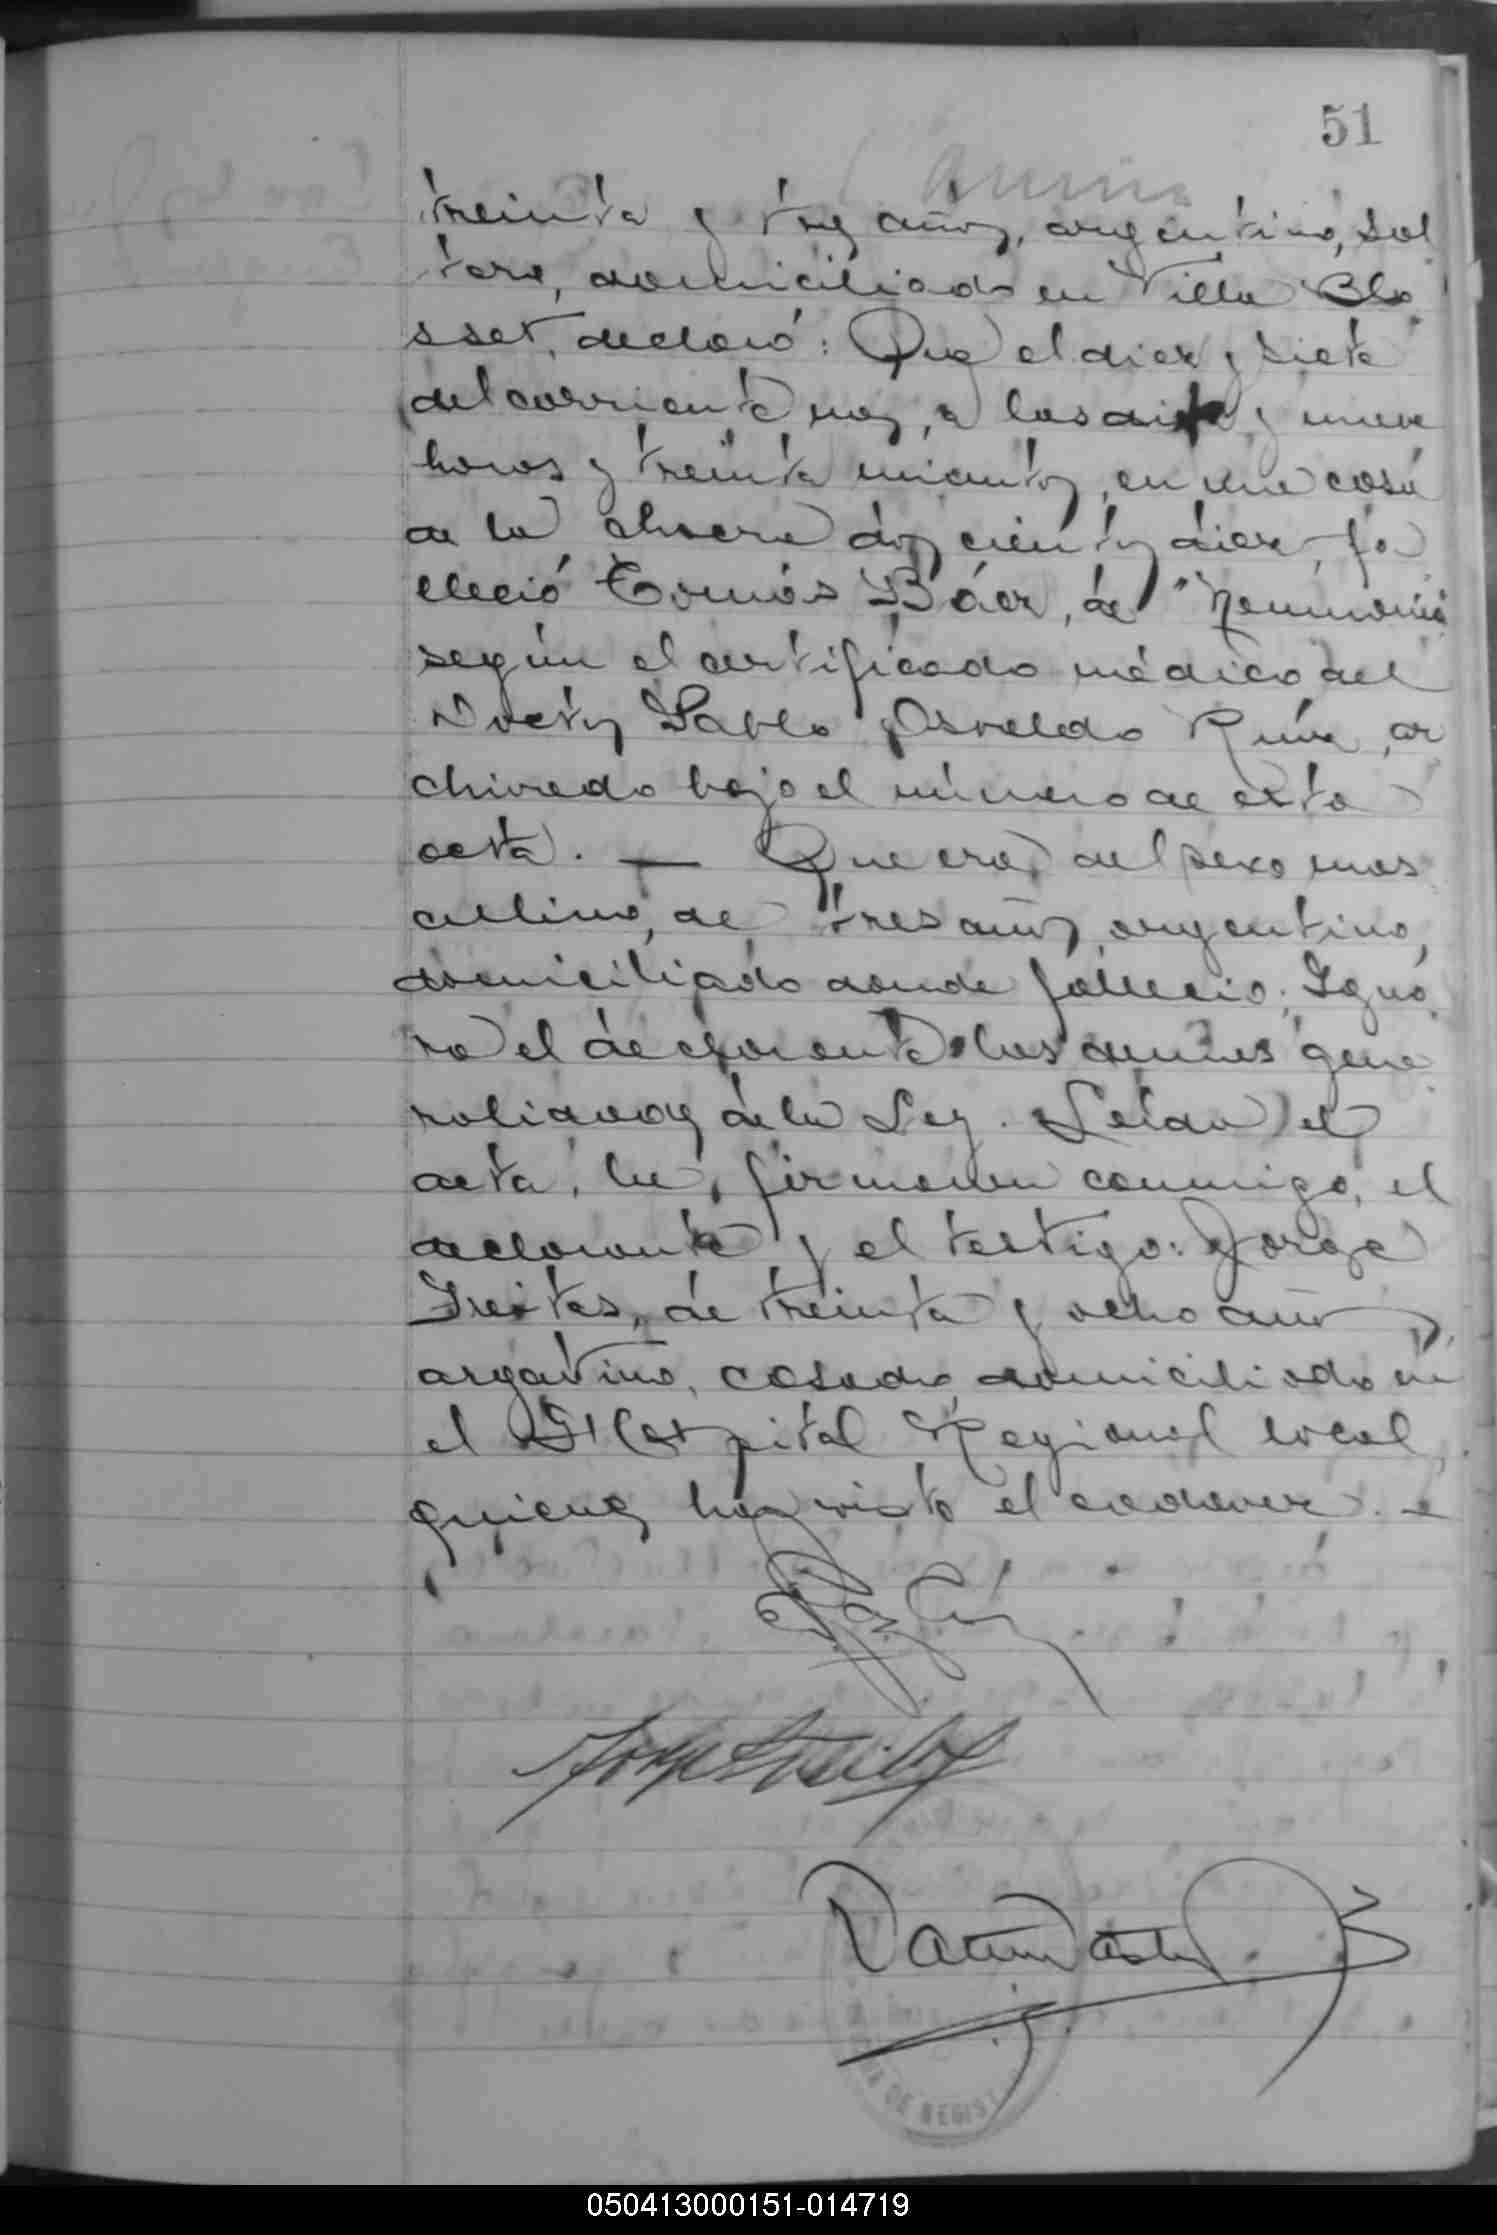 51
treinta y tres años, argentino, sol
tero, domiciliado en Villa Blo
sset, declaró: Que el diez y siete
del corriente mes, a las diez y nueve
horas y treinta minutos, en una casa
de la chacra doscientos diez, fa
lleció Tomás Báez, de "Neumonía
según el certificado médico del
Doctor Pablo Osvaldo
ar
chivado bajo el número de esta
acta. — Que era del sexo mas
culino, de tres años, argentino,
domiciliado donde falleció. Igno
ra el declarante las demás gene
ralidades de la Ley. Leída el
acta, la firmaron conmigo, el
declarante y el testigo: Jorge
Freites, de treinta y ocho años,
argentino, casado, domiciliado en
el Hospital Regional local,
quienes han visto el cadáver. —
DE REGIST
050413000151-014719